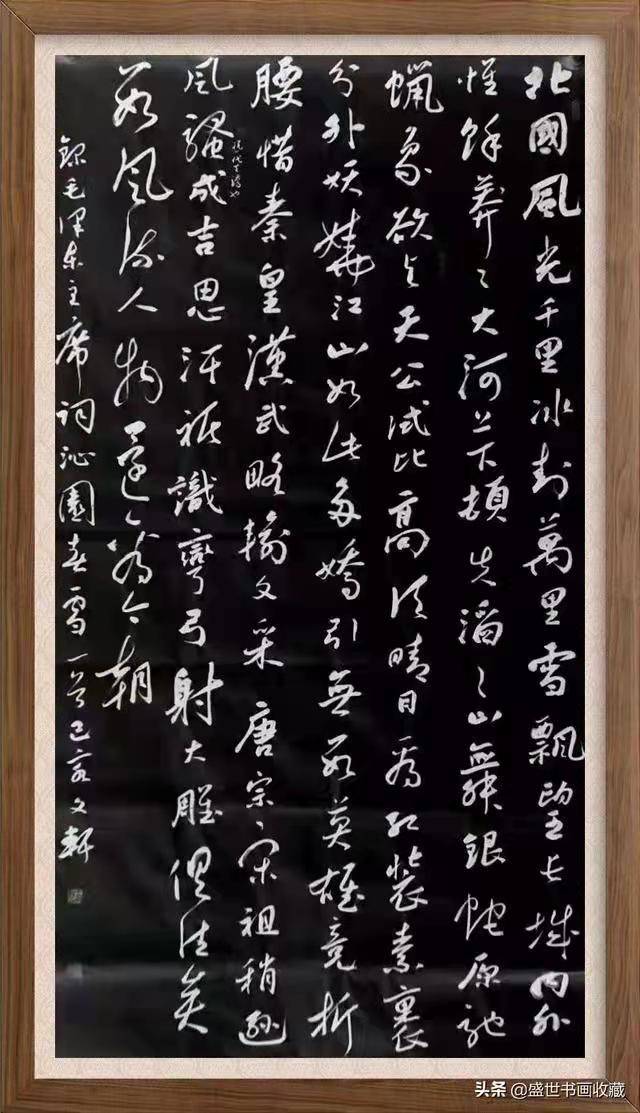 北國風光千里冰封萬里雪飄望长城内外
惟馀莽々大河上下頓失滔々山舞銀蛇原馳
蠟象欲与天公试比高须晴日看红裝素裹
分外妖嬈江山如此多嬌引無数英雄竞折
腰惜秦皇漢武略輸文采唐宗宋祖稍遜
風騷成吉思汗祗識彎弓射大雕俱往矣
数風流人物還看今朝
錄毛泽东主席词沁園春雪一首己亥文軒
头条@盛世书画收藏